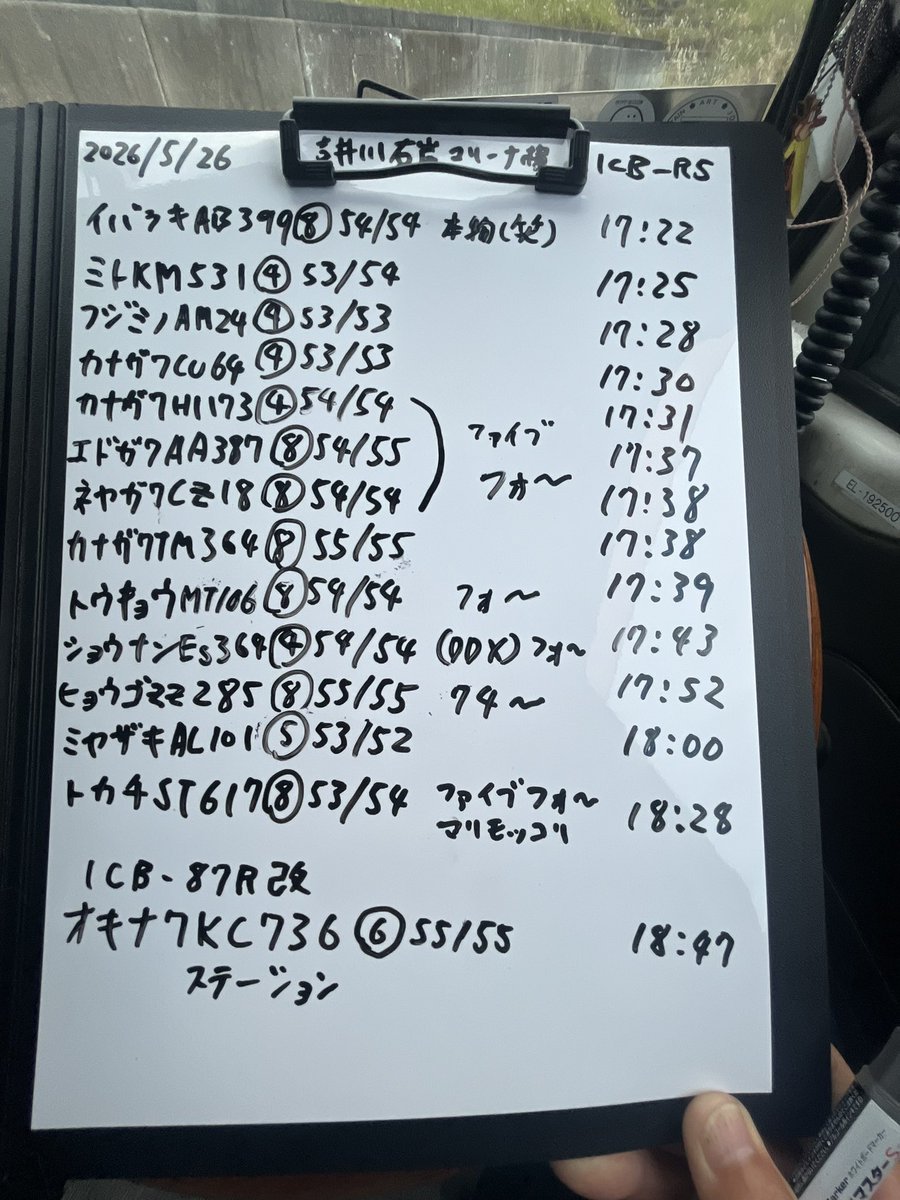 2026/5/26 吉井川石岩マリーナ横 ICB-R5
イバラキAB399⑧54/54 本物(笑) 17:22
ミトKM531④53/54 17:25
フジミノAM24④53/53 17:28
カナガワCU64④53/53 17:30
カナガワHI173④54/54 17:31
エドガワAA387⑧54/55 ファイブ 17:37
ネヤガワCZ18⑧54/54 フォ〜 17:38
カナガワTM364⑧55/55 17:38
トウキョウMT106⑧54/54 フォ〜 17:39
ショウナンEs364④54/54 (DDX)フォ〜 17:43
ヒョウゴZZ285⑧55/55 ワイ〜 17:52
ミヤザキAL101⑤53/52 18:00
トカチST617⑧53/54 ファイブフォ〜 18:28
マリモッコリ
ICB-87R改
オキナワKC736⑥55/55 18:47
ステーション
EL-192500